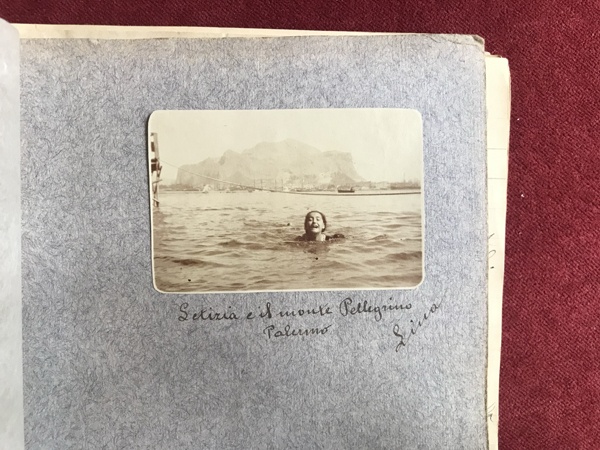 Letizia e il monte Pellegrino
Palermo
Lina